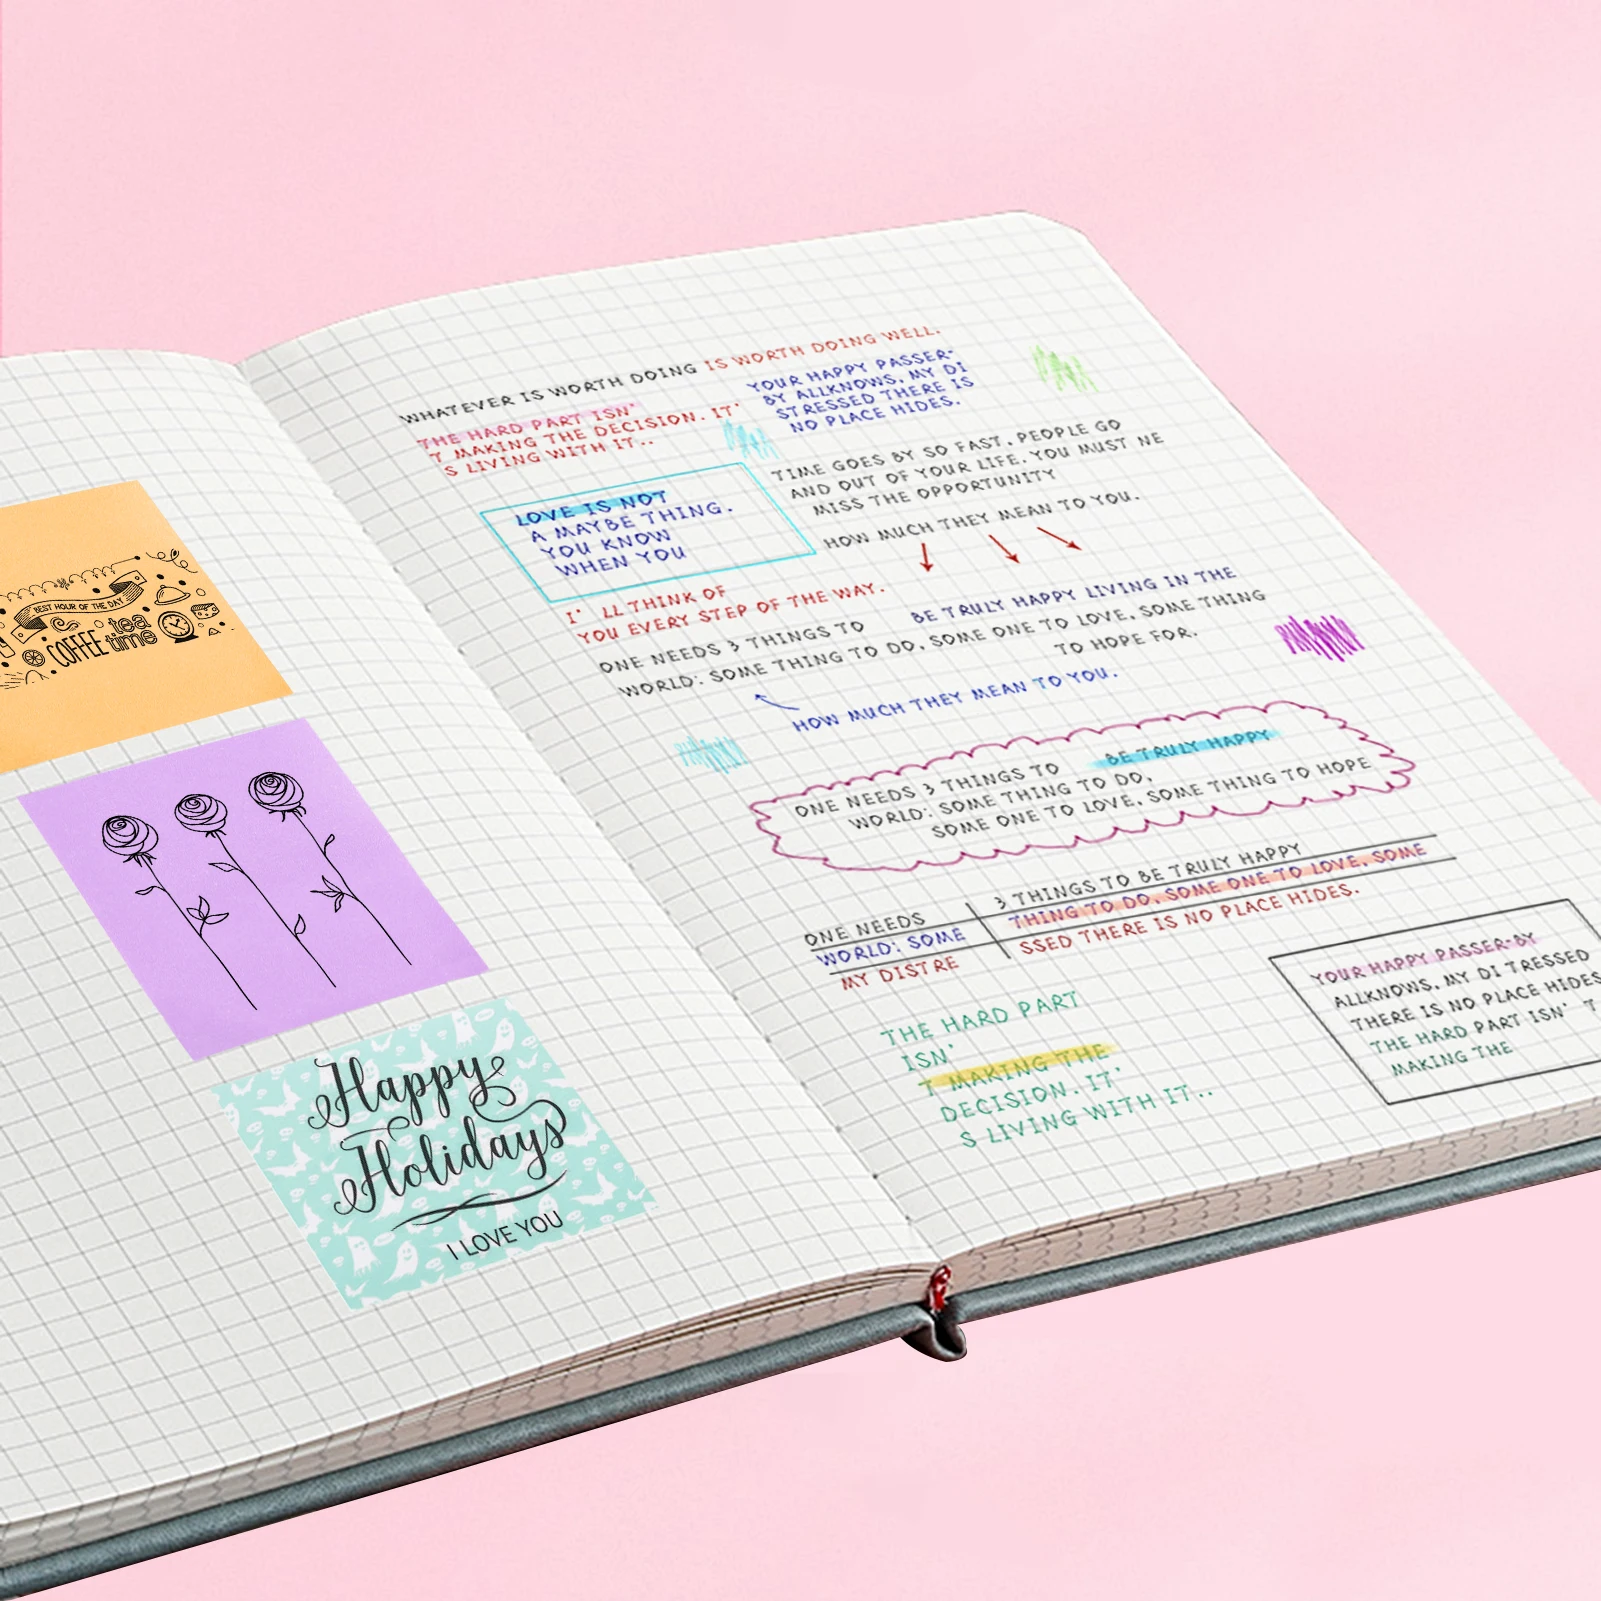 BEST HOUR OF THE DAY
COFFEE tea
time
Happy
Holidays
I LOVE YOU
WHATEVER IS WORTH DOING IS WORTH DOING WELL.
THE HARD PART ISN'
T MAKING THE DECISION. IT'
S LIVING WITH IT..
YOUR HAPPY PASSER-
BY ALLKNOWS, MY DI
STRESSED THERE IS
NO PLACE HIDES.
LOVE IS NOT
A MAYBE THING.
YOU KNOW
WHEN YOU
TIME GOES BY SO FAST, PEOPLE GO
AND OUT OF YOUR LIFE. YOU MUST NE
MISS THE OPPORTUNITY
HOW MUCH THEY MEAN TO YOU.
I' LL THINK OF
YOU EVERY STEP OF THE WAY.
ONE NEEDS 3 THINGS TO BE TRULY HAPPY LIVING IN THE
WORLD: SOME THING TO DO, SOME ONE TO LOVE, SOME THING
TO HOPE FOR.
HOW MUCH THEY MEAN TO YOU.
ONE NEEDS 3 THINGS TO BE TRULY HAPPY
WORLD: SOME THING TO DO,
SOME ONE TO LOVE, SOME THING TO HOPE
ONE NEEDS 3 THINGS TO BE TRULY HAPPY
WORLD: SOME THING TO DO, SOME ONE TO LOVE, SOME
MY DISTRE SSED THERE IS NO PLACE HIDES.
THE HARD PART
ISN'
T MAKING THE
DECISION. IT'
S LIVING WITH IT..
YOUR HAPPY PASSER-BY
ALLKNOWS, MY DI TRESSED
THERE IS NO PLACE HIDES
THE HARD PART ISN' T
MAKING THE